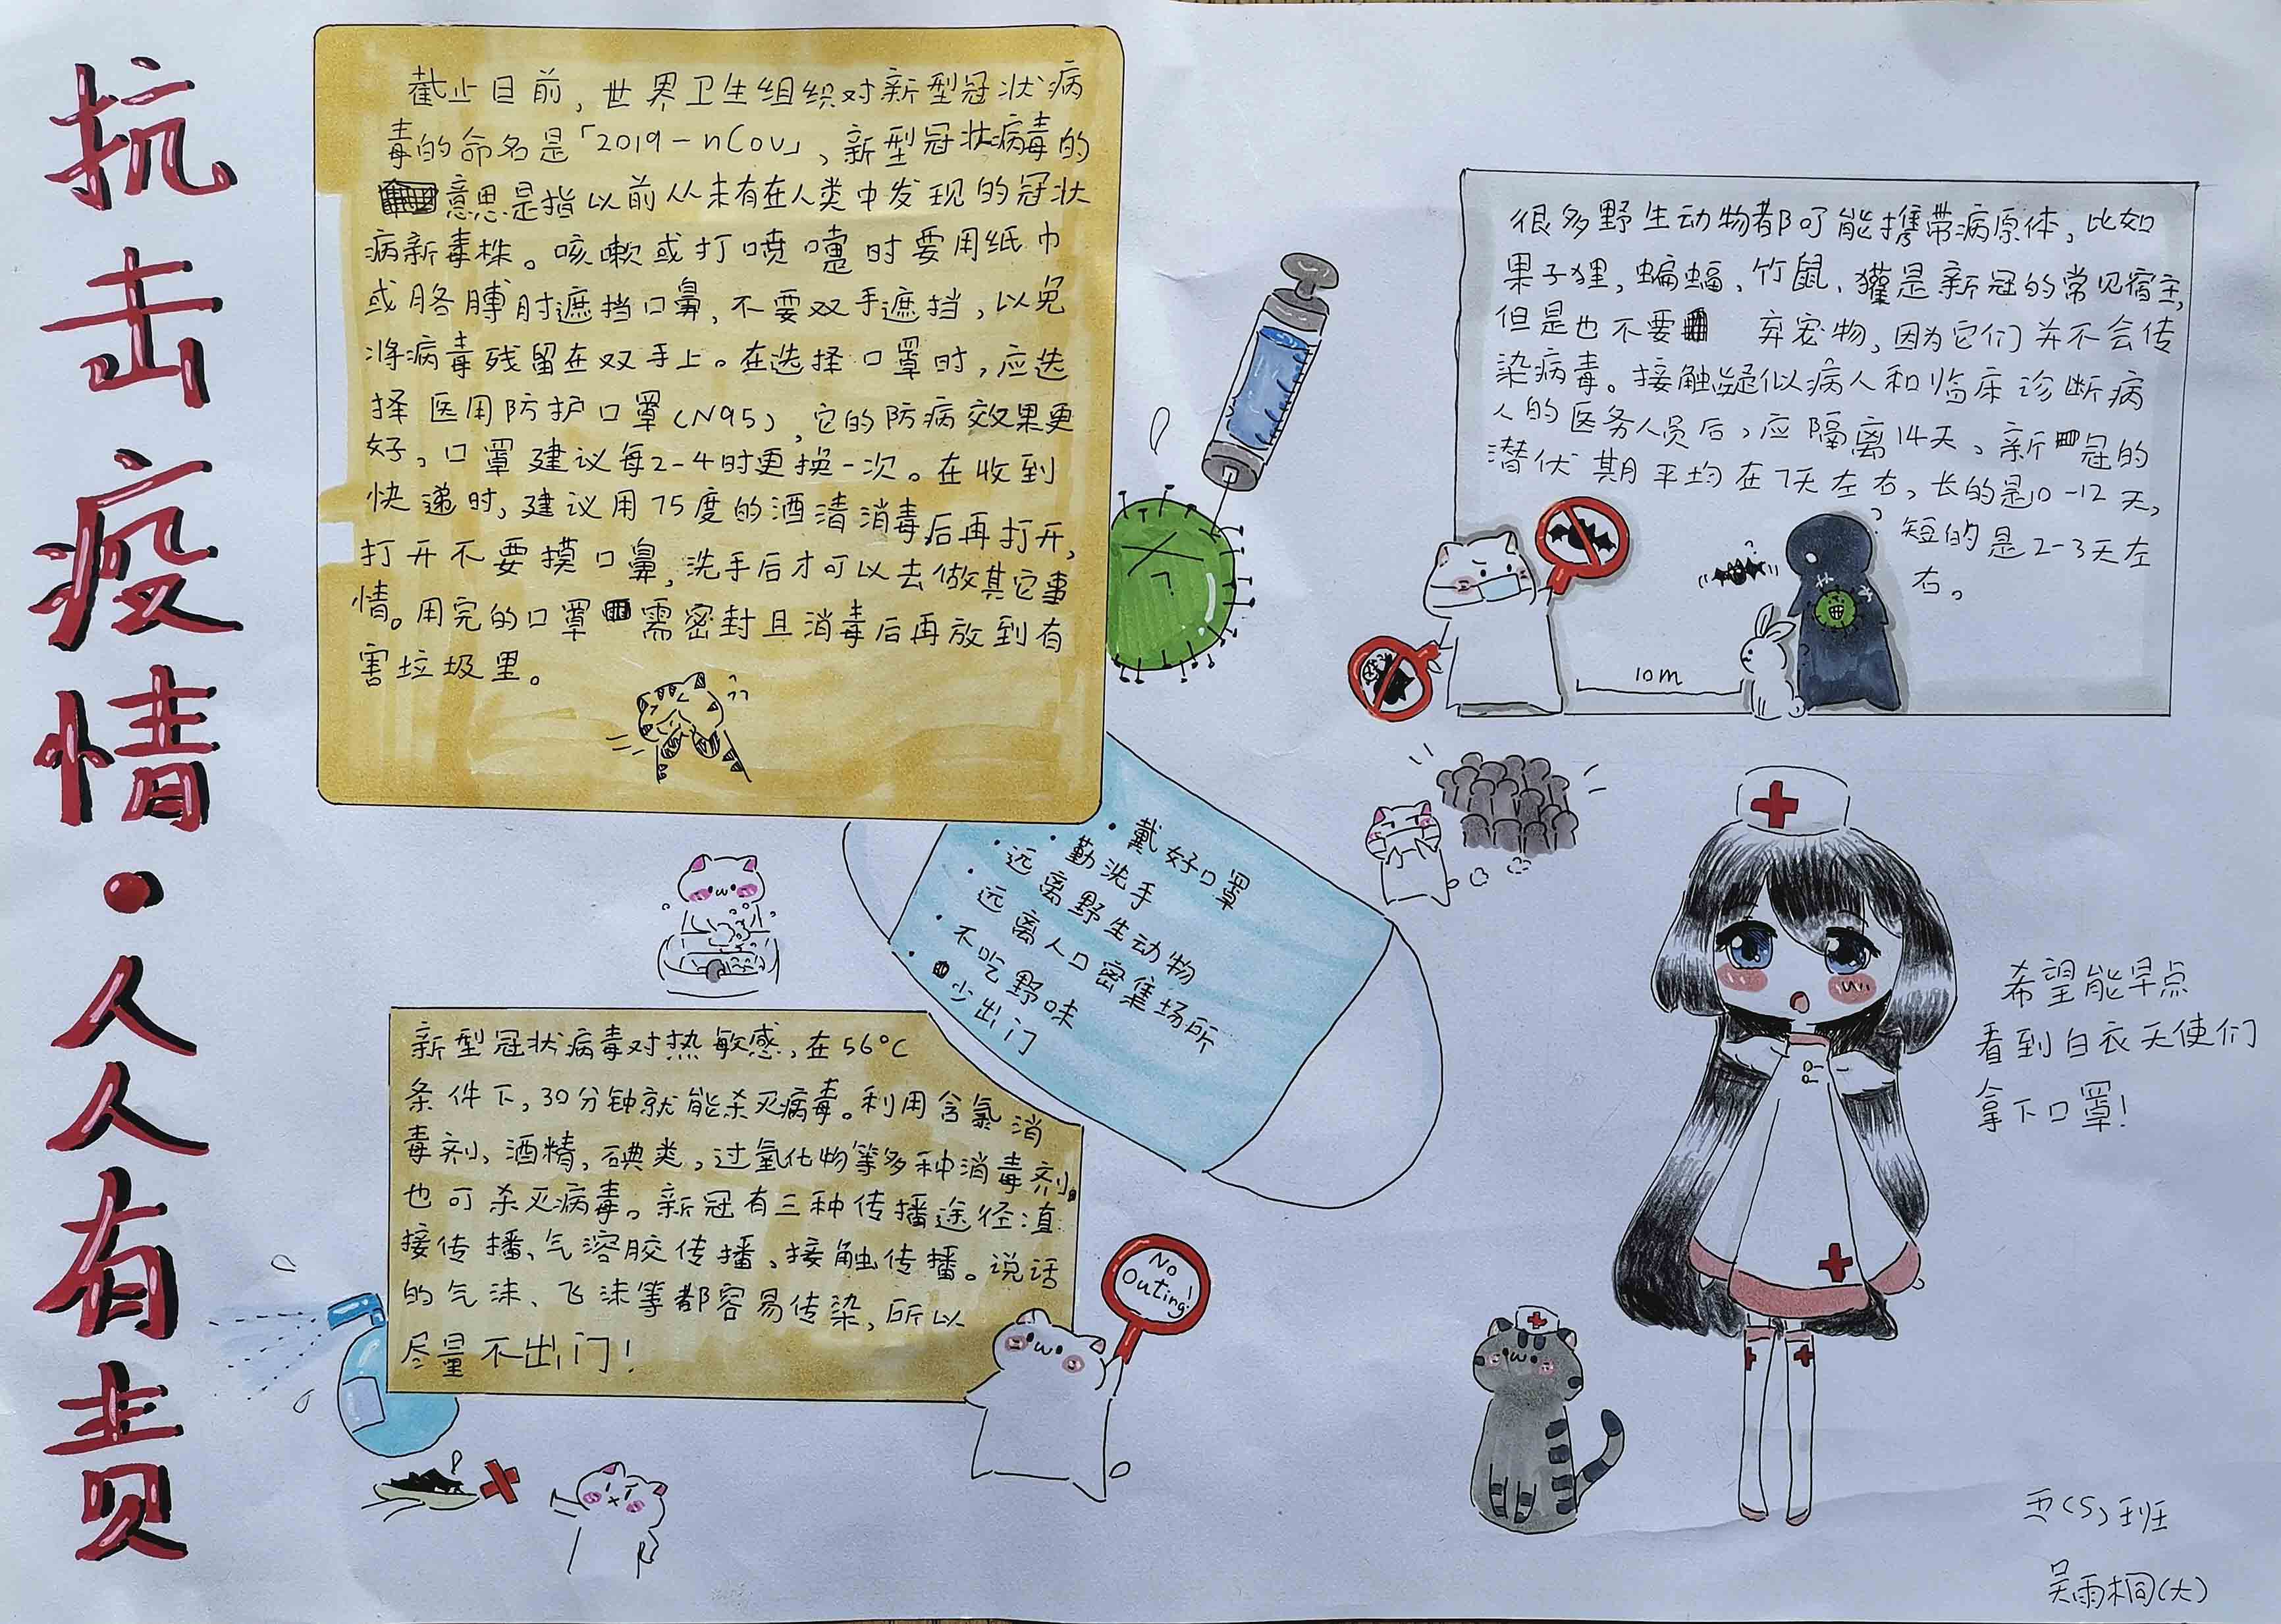 抗击疫情·人人有责
截止目前，世界卫生组织对新型冠状病
毒的命名是「2019-nCov」、新型冠状病毒的
意思是指以前从未有在人类中发现的冠状
病新毒株。咳嗽或打喷嚏时要用纸巾
或胳膊肘遮挡口鼻，不要双手遮挡，以免
将病毒残留在双手上。在选择口罩时，应选
择医用防护口罩(N95)，它的防病效果更
好，口罩建议每2-4时更换一次。在收到
快递时，建议用75度的酒清消毒后再打开，
打开不要摸口鼻，洗手后才可以去做其它事
情。用完的口罩需密封且消毒后再放到有
害垃圾里。
很多野生动物都可能携带病原体，比如
果子狸，蝙蝠、竹鼠、獾是新冠的常见宿主，
但是也不要 弃宠物，因为它们并不会传
染病毒。接触疑似病人和临床诊断病
人的医务人员后，应隔离14天。新冠的
潜伏期平均在7天左右，长的是10-12天，
短的是2-3天左
右。
10m
·戴好口罩
·勤洗手
·远离野生动物
·远离人口密集场所
·不吃野味
·少出门
新型冠状病毒对热敏感，在56°C
条件下，30分钟就能杀灭病毒。利用含氯消
毒剂，酒精，碘类，过氧化物等多种消毒剂
也可杀灭病毒。新冠有三种传播途径：直
接传播、气溶胶传播、接触传播。说话
的气沫、飞沫等都容易传染，所以
尽量不出门！
No
Outing!
希望能早点
看到白衣天使们
拿下口罩！
(5)班
吴雨桐(大)